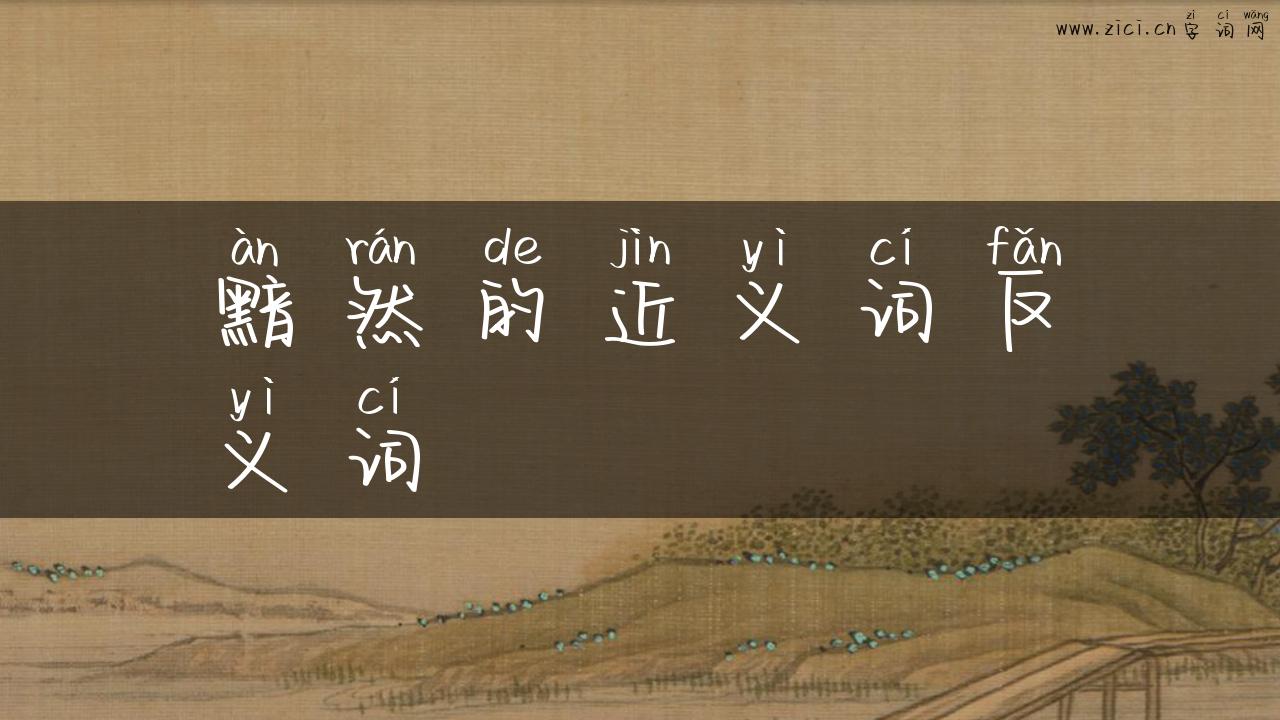 zì cí wǎng
www.zici.cn字词网
àn rán de jìn yì cí fǎn
黯然的近义词反
yì cí
义词